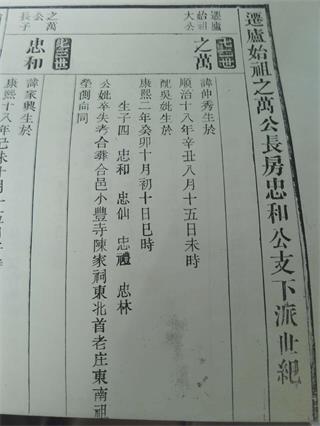 遷廬始祖之萬公長房忠和公支下派世紀
遷廬
始祖
大公
之萬
諱仲秀生於
順治十八年辛丑八月十五日未時
配吳妣生於
康熙二年癸卯十月初十日巳時
生子四 忠和 忠仙 忠禮 忠林
公妣卒失考合葬合邑小豐寺陳家祠東北首老庄東南祖
塋側向同
之萬
公
長子
忠和
諱家興生於
康熙十八年己未十月十五日